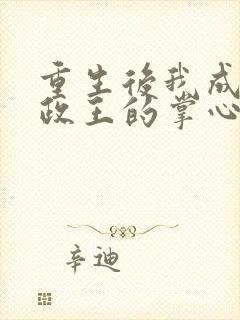 重生後我成
政王的掌心
辛迪